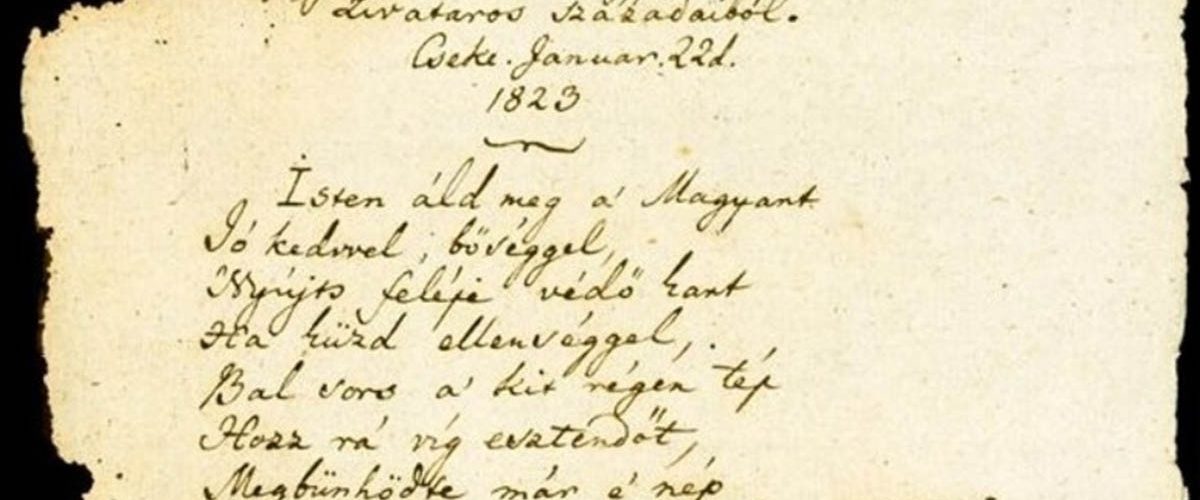 Zivataros századaiból.
Cseke. Januar. 22d.
1823
Isten áld meg a' Magyart
Jó kedvvel, bőséggel,
Nyújts feléje védő kart
Ha küzd ellenséggel,
Bal sors a' kit régen tép
Hozz rá víg esztendőt,
Megbünhődte már e' nép